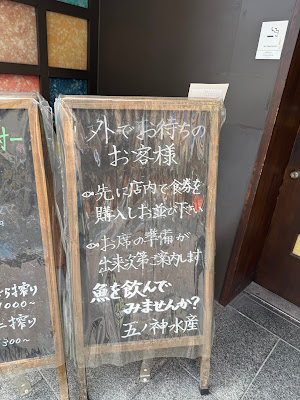 外でお待ちの
お客様
先に店内で食券を
購入しお並び下さい
お席の準備が
出来次第ご案内します
魚を飲んで
みませんか？
五ノ神水産
搾り
000～
搾り
300～